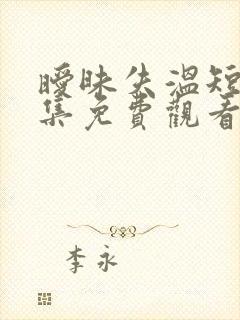 曖昧失溫短
集免費觀看
李永